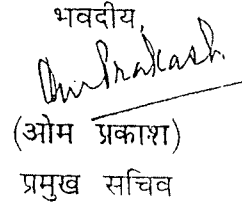 भवदीय,
Om Prakash.
(ओम प्रकाश)
प्रमुख सचिव